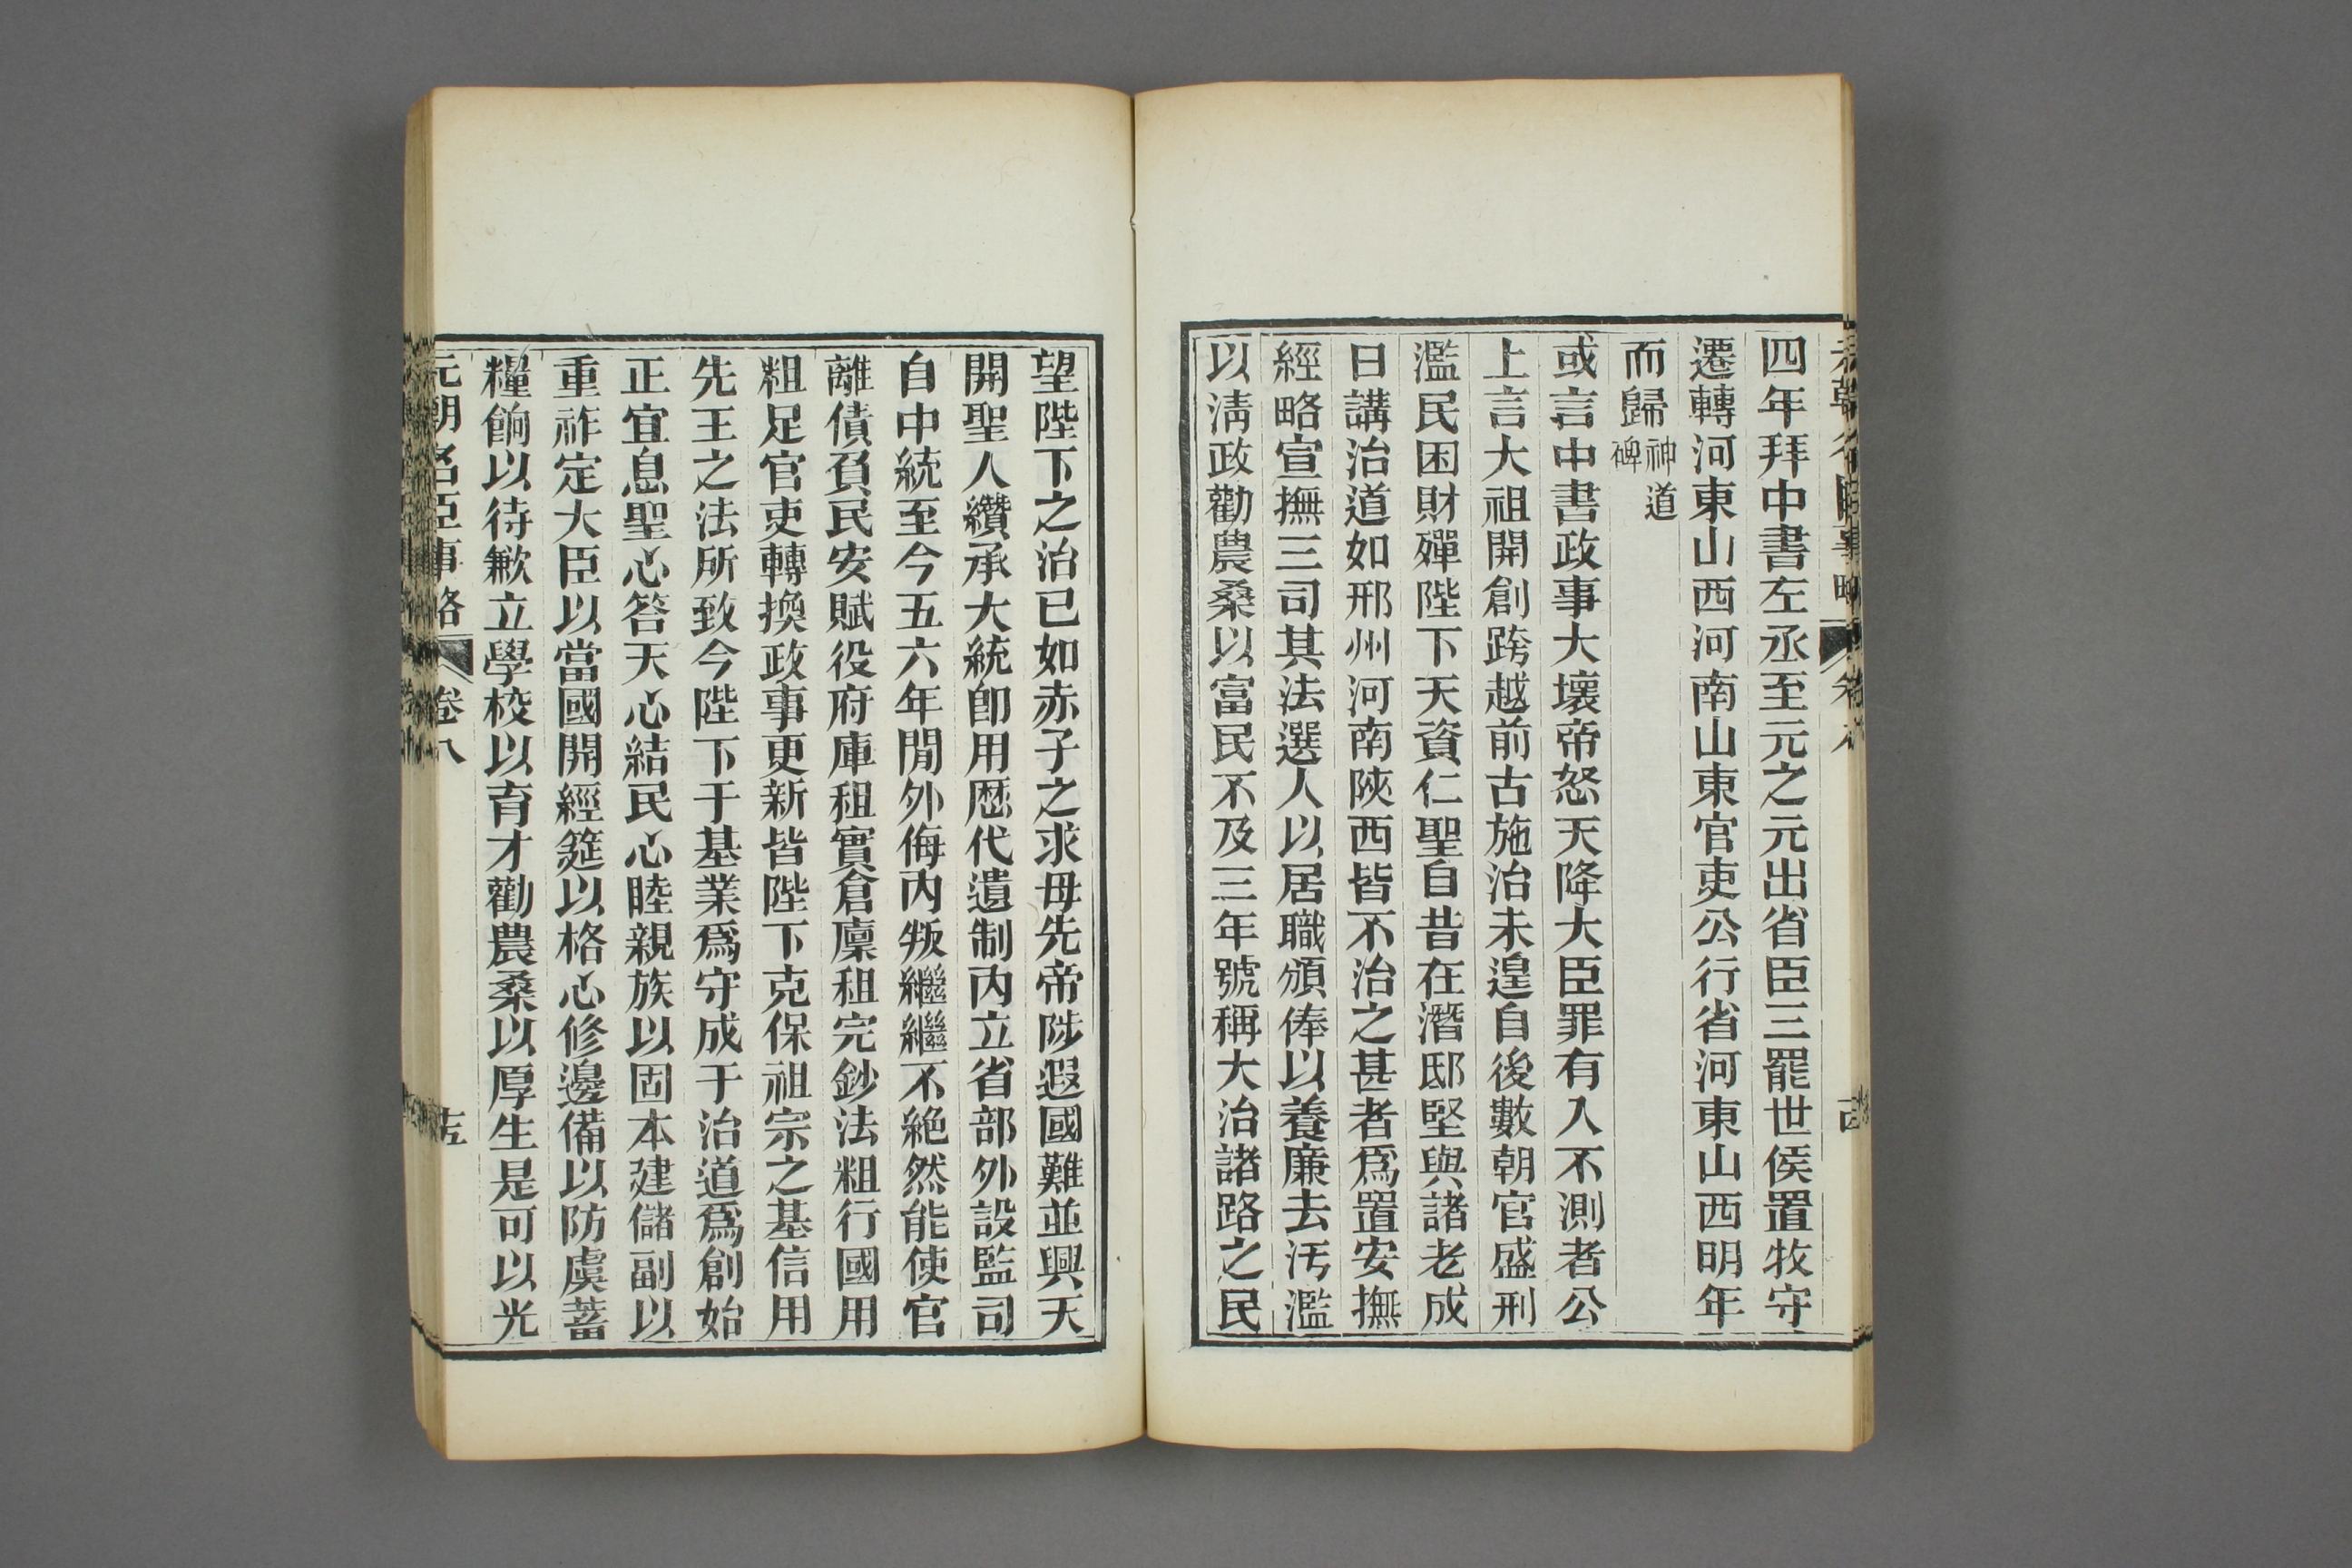 四年拜中書左丞至元之元出省臣三罷世侯置牧守
遷轉河東山西河南山東官吏公行省河東山西明年
而歸神道碑
或言中書政事大壞帝怒天降大臣罪有入不測者公
上言大祖開創跨越前古施治未遑自後數朝官盛刑
濫民困財殫陛下天資仁聖自昔在潛邸堅與諸老成
日講治道如邢州河南陝西皆不治之甚者爲置安撫
經略宣撫三司其法選人以居職頒俸以養廉去汚濫
以淸政勸農桑以富民不及三年號稱大治諸路之民
望陛下之治已如赤子之求母先帝陟遐國難並興天
開聖人纘承大統卽用歷代遺制內立省部外設監司
自中統至今五六年閒外侮內叛繼繼不絶然能使官
離債負民安賦役府庫租實倉廩租完鈔法粗行國用
粗足官吏轉換政事更新皆陛下克保祖宗之基信用
先王之法所致今陛下于基業爲守成于治道爲創始
正宜息聖心答天心結民心睦親族以固本建儲副以
重祚定大臣以當國開經筵以格心修邊備以防虞蓄
糧餉以待歉立學校以育才勸農桑以厚生是可以光
元朝名臣事略 卷八 十五